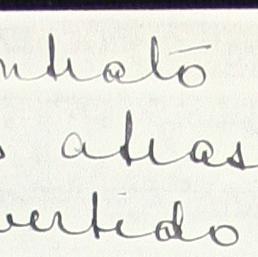 ntrato
s atras
vertido